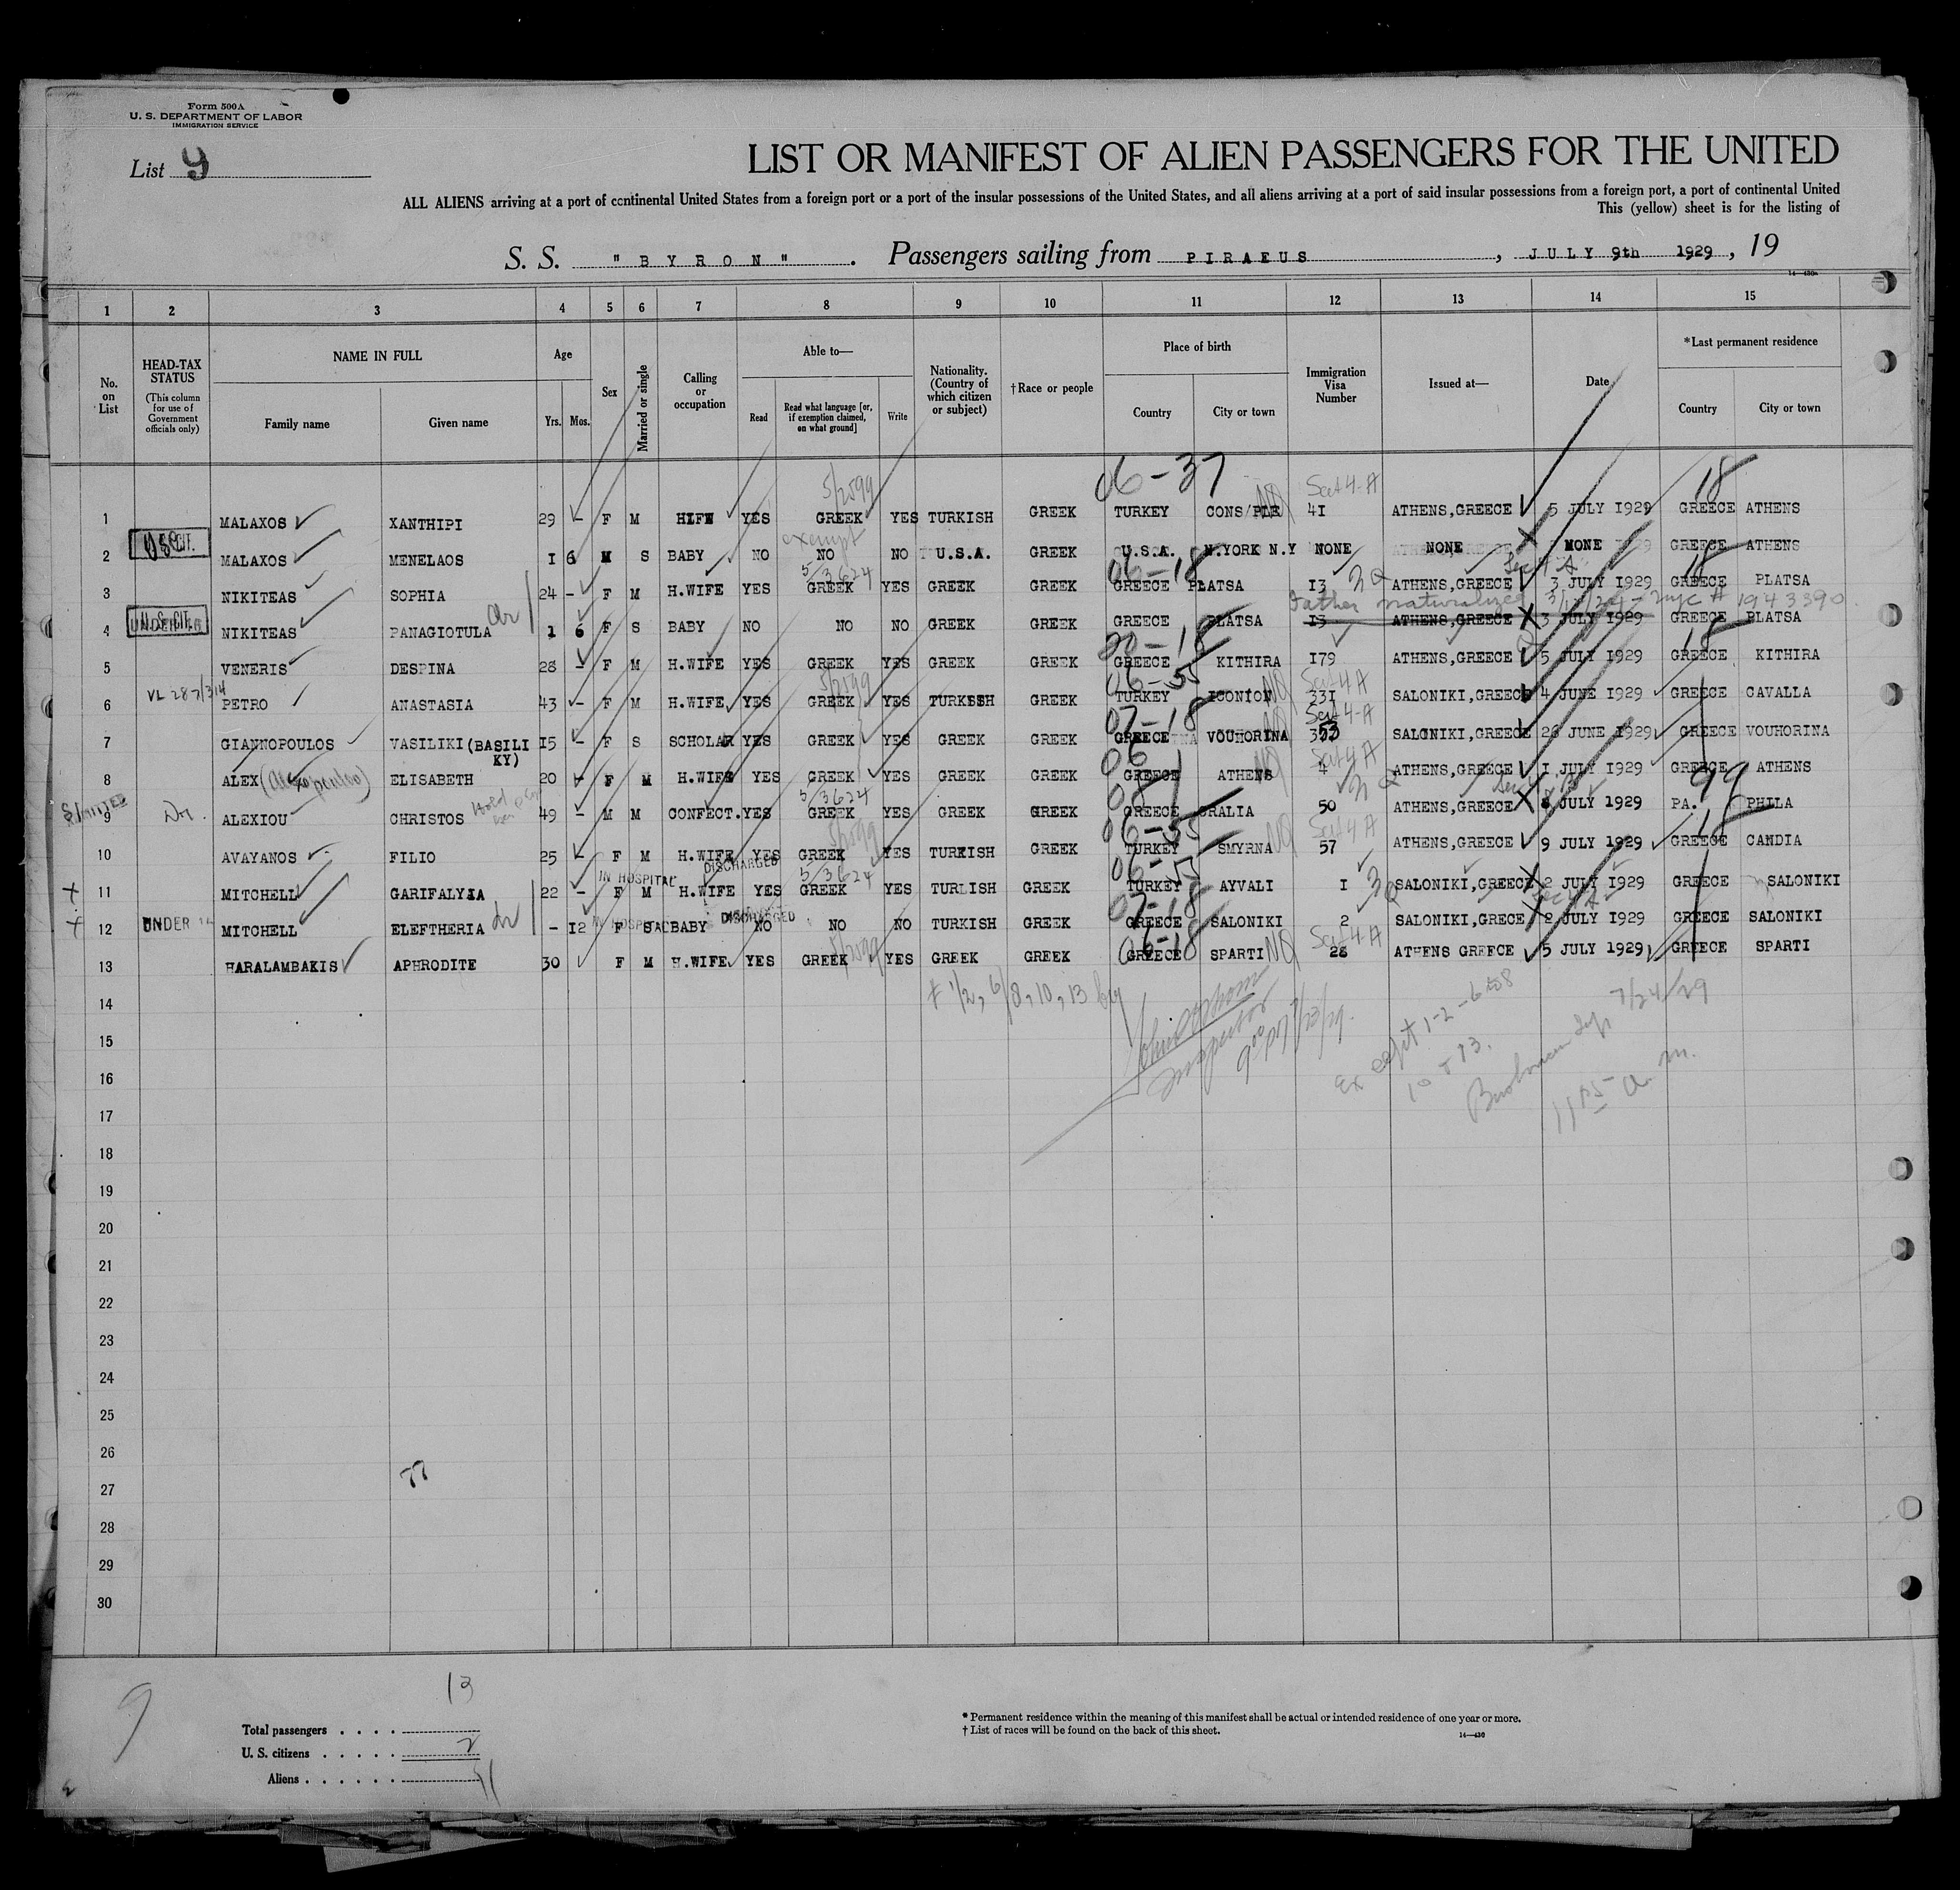 Form 500A
U. S. DEPARTMENT OF LABOR
IMMIGRATION SERVICE
List 9
LIST OR MANIFEST OF ALIEN PASSENGERS FOR THE UNITED
ALL ALIENS arriving at a port of continental United States from a foreign port or a port of the insular possessions of the United States, and all aliens arriving at a port of said insular possessions from a foreign port, a port of continental United
This (yellow) sheet is for the listing of
S. S. "BYRON". Passengers sailing from PIRAEUS, JULY 9th 1929, 19
14—430
1 2 3 4 5 6 7 8 9 10 11 12 13 14 15
No. on List
HEAD-TAX STATUS (This column for use of Government officials only)
NAME IN FULL
Family name Given name
Age
Yrs. Mos.
Sex
Married or single
Calling or occupation
Able to—
Read Read what language [or, if exemption claimed, on what ground] Write
Nationality. (Country of which citizen or subject)
†Race or people
Place of birth
Country City or town
Immigration Visa Number
Issued at—
Date
*Last permanent residence
Country City or town
06-37 Sect 4-A 18
5/2599
1 MALAXOS XANTHIPI 29 - F M YES GREEK YES TURKISH GREEK TURKEY CONS/PLE 41 ATHENS,GREECE 5 JULY 1929 GREECE ATHENS
exempt
2 MALAXOS MENELAOS 1 6 M S BABY NO NO NO U.S.A. GREEK U.S.A. N.YORK N.Y NONE NONE NONE GREECE ATHENS
5/3624 06-18 18
3 NIKITEAS SOPHIA 24 - F M H.WIFE YES GREEK YES GREEK GREEK GREECE PLATSA 13 ATHENS,GREECE 3 JULY 1929 GREECE PLATSA
Father naturalized NYC # 1943390
4 U.S. CIT. NIKITEAS PANAGIOTULA 1 6 F S BABY NO NO NO GREEK GREEK GREECE PLATSA 13 ATHENS,GREECE 3 JULY 1929 GREECE PLATSA
18
5 VENERIS DESPINA 28 - F M H.WIFE YES GREEK YES GREEK GREEK GREECE KITHIRA 179 ATHENS,GREECE 5 JULY 1929 GREECE KITHIRA
5/2599 06-55 Sect 4 A
6 PETRO ANASTASIA 43 - F M H.WIFE YES GREEK YES TURKISH GREEK TURKEY ICONION 331 SALONIKI,GREECE 4 JUNE 1929 GREECE CAVALLA
07-18 Sect 4-A
7 GIANNOPOULOS VASILIKI (BASILIKY) 15 - F S SCHOLAR YES GREEK YES GREEK GREEK GREECE VOUHORINA SALONIKI,GREECE 26 JUNE 1929 GREECE VOUHORINA
06 Sect 4 A
8 ALEX ELISABETH 20 - F M H.WIFE YES GREEK YES GREEK GREEK GREECE ATHENS 4 ATHENS,GREECE 1 JULY 1929 GREECE ATHENS
5/3624 99
9 ALEXIOU CHRISTOS 49 - M M CONFECT. YES GREEK YES GREEK GREEK GREECE GRALIA 50 ATHENS,GREECE 8 JULY 1929 PA. PHILA
5/2599 06-55 Sect 4 A 18
10 AVAYANOS FILIO 25 - F M H.WIFE YES GREEK YES TURKISH GREEK TURKEY SMYRNA 57 ATHENS,GREECE 9 JULY 1929 GREECE CANDIA
IN HOSPITAL DISCHARGED 5/3624
11 MITCHELL GARIFALYIA 22 - F M H.WIFE YES GREEK YES TURLISH GREEK TURKEY AYVALI 1 SALONIKI,GREECE 2 JULY 1929 GREECE SALONIKI
IN HOSPITAL DISCHARGED 07-18
12 UNDER MITCHELL ELEFTHERIA - 12 F S BABY NO NO NO TURKISH GREEK GREECE SALONIKI 2 SALONIKI,GRECE 2 JULY 1929 GREECE SALONIKI
5/2599 06-18 Sect 4-A
13 HARALAMBAKIS APHRODITE 30 F M H.WIFE YES GREEK YES GREEK GREEK GREECE SPARTI 28 ATHENS GREECE 5 JULY 1929 GREECE SPARTI
# 1/2, 6/8, 10, 13
Except 1-2-6 to 8
10 + 13.
7/24/29
11 05 a. m.
14
15
16
17
18
19
20
21
22
23
24
25
26
27
28
29
30
77
9
13
Total passengers
U. S. citizens 2
Aliens 11
* Permanent residence within the meaning of this manifest shall be actual or intended residence of one year or more.
† List of races will be found on the back of this sheet.
14—430